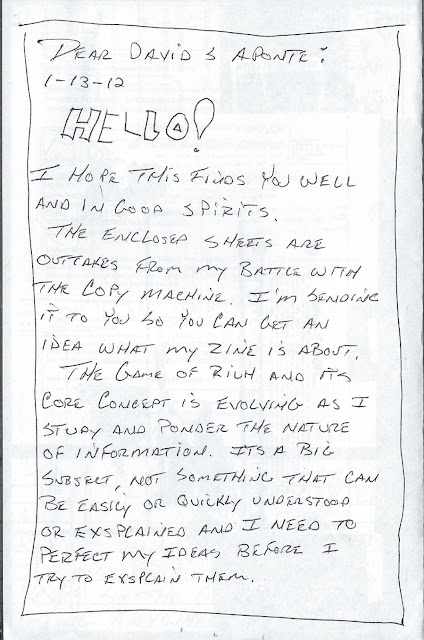 DEAR DAVID S APONTE:
1-13-12
HELLO!
I HOPE THIS FINDS YOU WELL
AND IN GOOD SPIRITS.
THE ENCLOSED SHEETS ARE
OUTTAKES FROM MY BATTLE WITH
THE COPY MACHINE. I'M SENDING
IT TO YOU SO YOU CAN GET AN
IDEA WHAT MY ZINE IS ABOUT.
THE GAME OF RIUH AND ITS
CORE CONCEPT IS EVOLVING AS I
STUDY AND PONDER THE NATURE
OF INFORMATION. ITS A BIG
SUBJECT, NOT SOMETHING THAT CAN
BE EASILY OR QUICKLY UNDERSTOOD
OR EXSPLAINED AND I NEED TO
PERFECT MY IDEAS BEFORE I
TRY TO EXSPLAIN THEM.